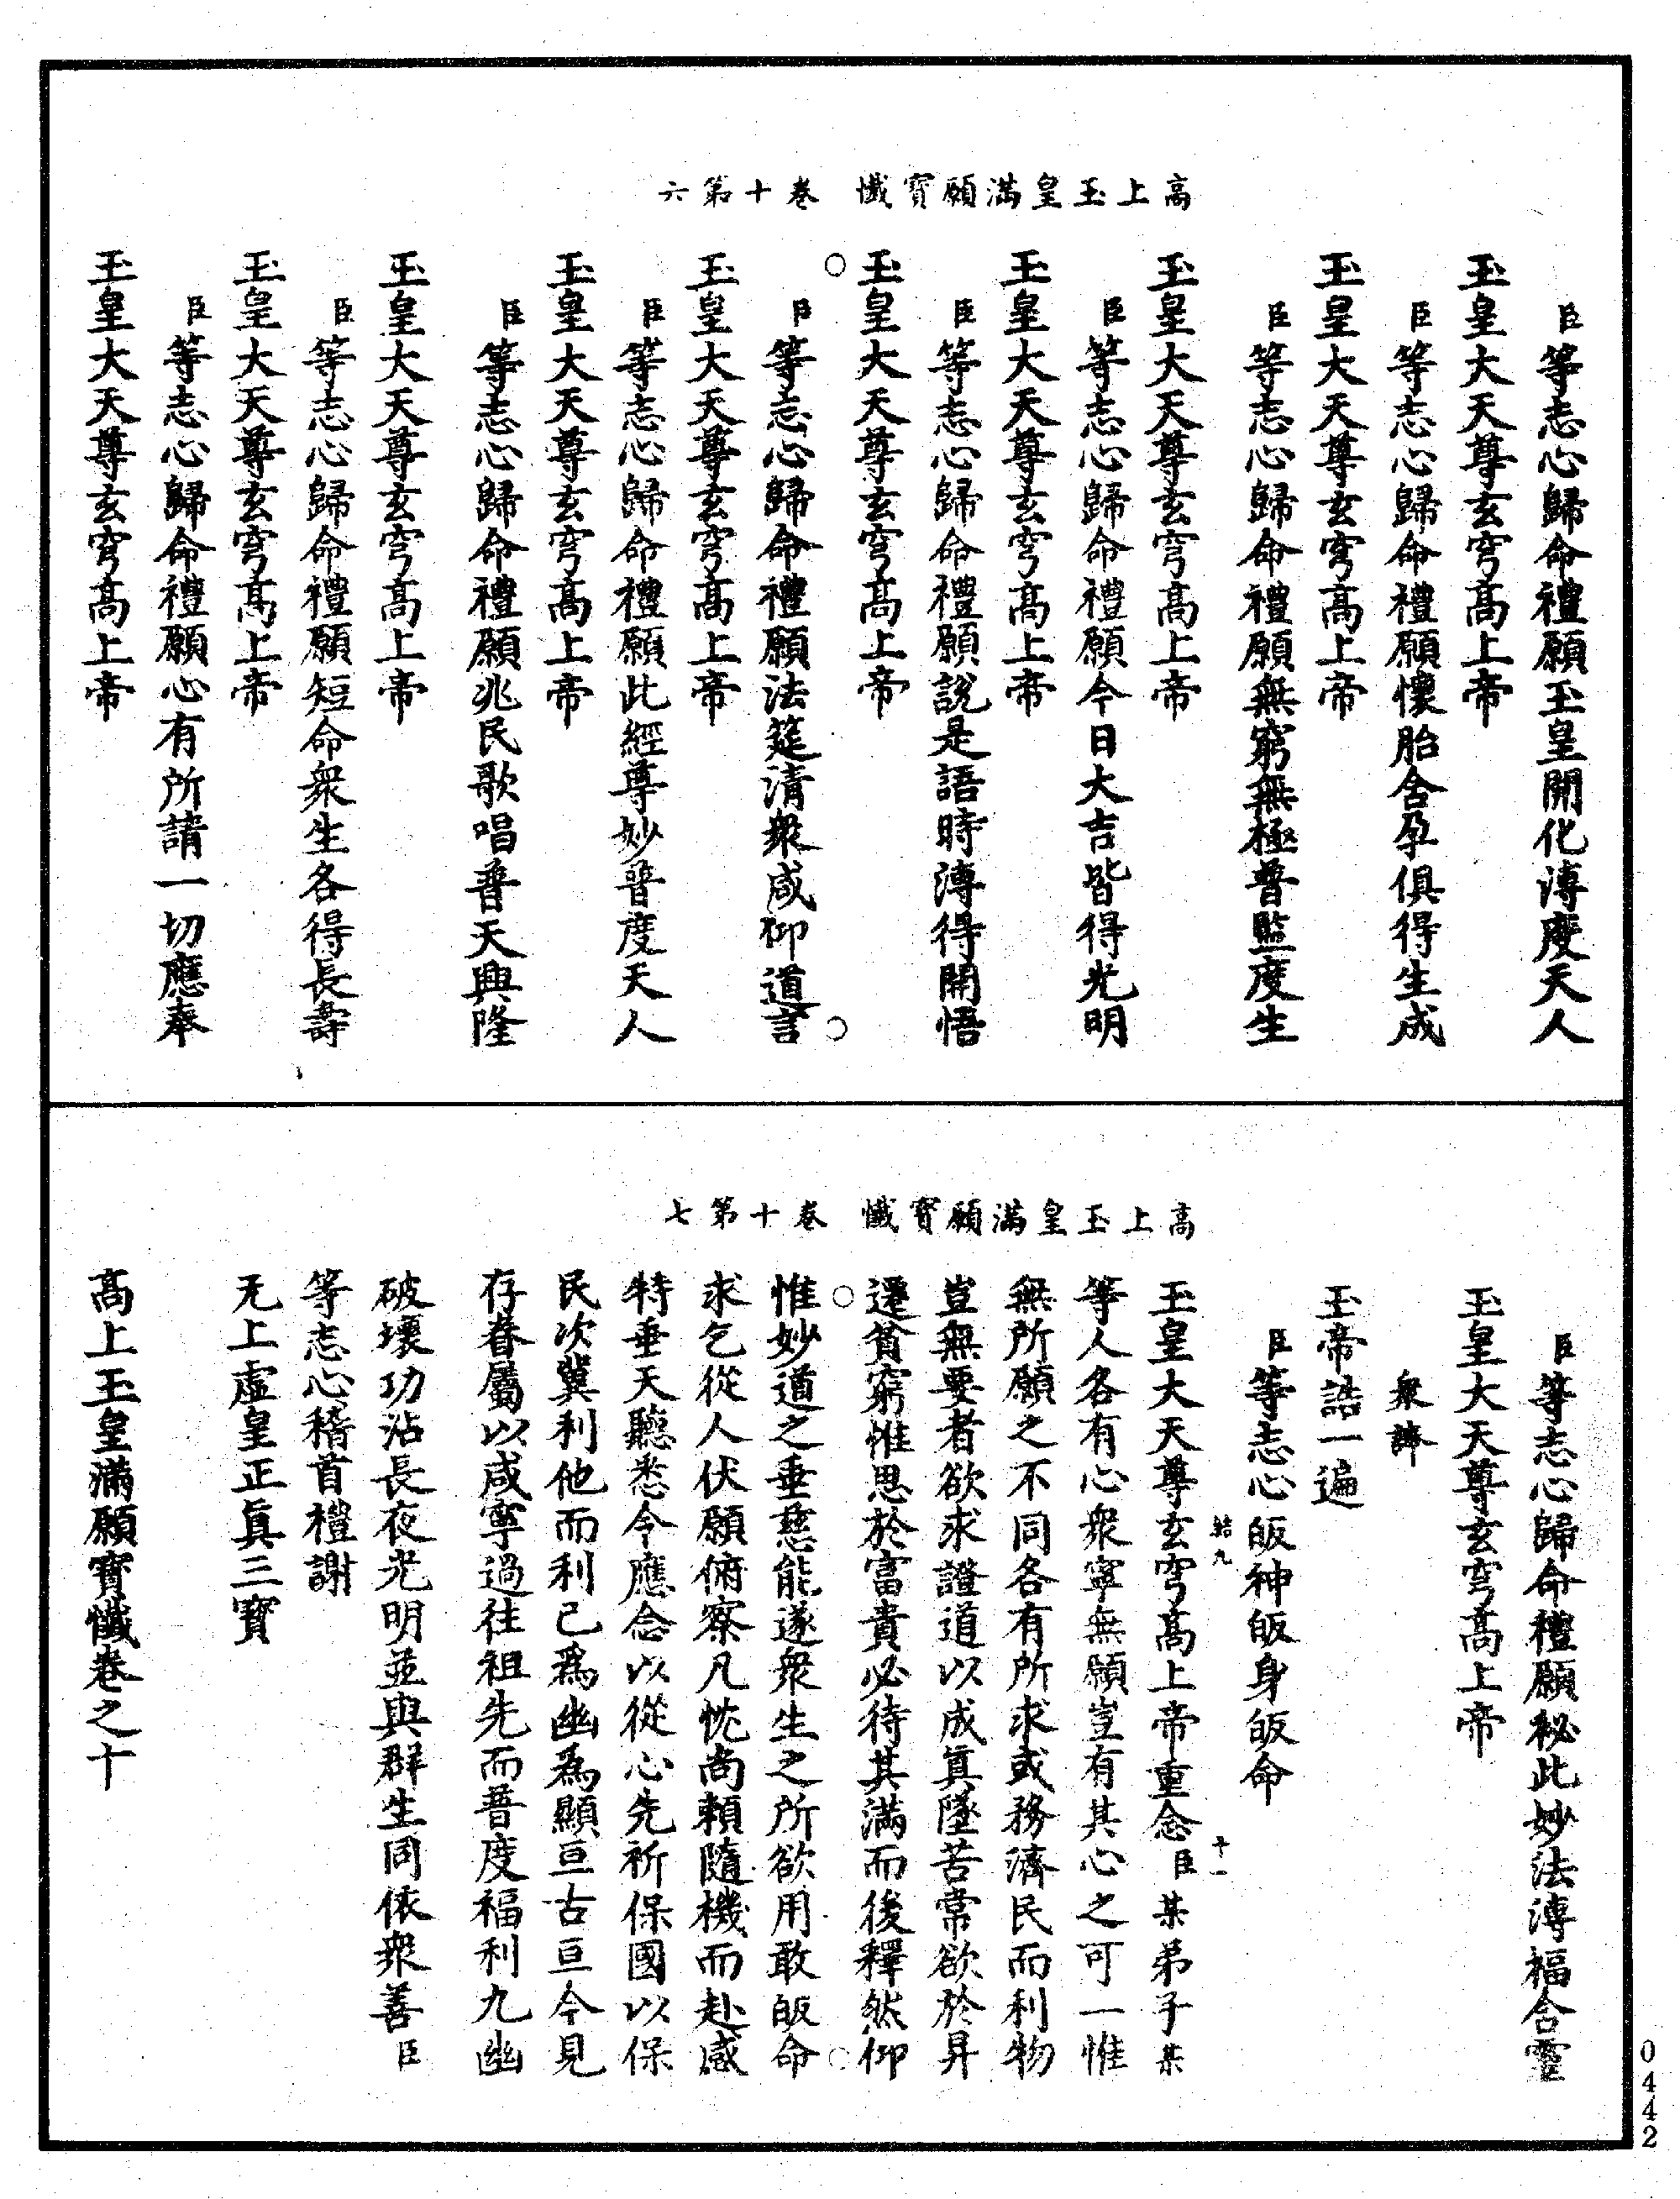 高上玉皇滿願寶懺　卷十第六
臣等志心歸命禮願玉皇開化溥度天人
玉皇大天尊玄穹高上帝
臣等志心歸命禮願懷胎含孕俱得生成
玉皇大天尊玄穹高上帝
臣等志心歸命禮願無窮無極普監度生
玉皇大天尊玄穹高上帝
臣等志心歸命禮願今日大吉皆得光明
玉皇大天尊玄穹高上帝
臣等志心歸命禮願說是語時溥得開悟
玉皇大天尊玄穹高上帝
臣等志心歸命禮願法筵清衆咸仰道言
玉皇大天尊玄穹高上帝
臣等志心歸命禮願此經尊妙普度天人
玉皇大天尊玄穹高上帝
臣等志心歸命禮願兆民歌唱普天興隆
玉皇大天尊玄穹高上帝
臣等志心歸命禮願短命衆生各得長壽
玉皇大天尊玄穹高上帝
臣等志心歸命禮願心有所請一切應奉
玉皇大天尊玄穹高上帝
高上玉皇滿願寶懺　卷十第七
臣等志心歸命禮願秘此妙法溥福含靈
玉皇大天尊玄穹高上帝
衆諱
玉帝誥一遍
臣等志心皈神皈身皈命
玉皇大天尊玄穹高上帝重念臣某弟子某
等人各有心衆寧無願豈有其心之可一惟
無所願之不同各有所求或務濟民而利物
豈無要者欲求證道以成眞墜苦常欲於昇
遷貧窮惟思於富貴必待其滿而後釋然仰
惟妙道之垂慈能遂衆生之所欲用敢皈命
求乞從人伏願俯察凡忱尚賴隨機而赴感
特垂天聽悉令應念以從心先祈保國以保
民次冀利他而利己爲幽爲顯亘古亘今見
存眷屬以咸寧過往祖先而普度福利九幽
破壞功沾長夜光明並與群生同依衆善臣
等志心稽首禮謝
无上虛皇正眞三寶
高上玉皇滿願寶懺卷之十
0442